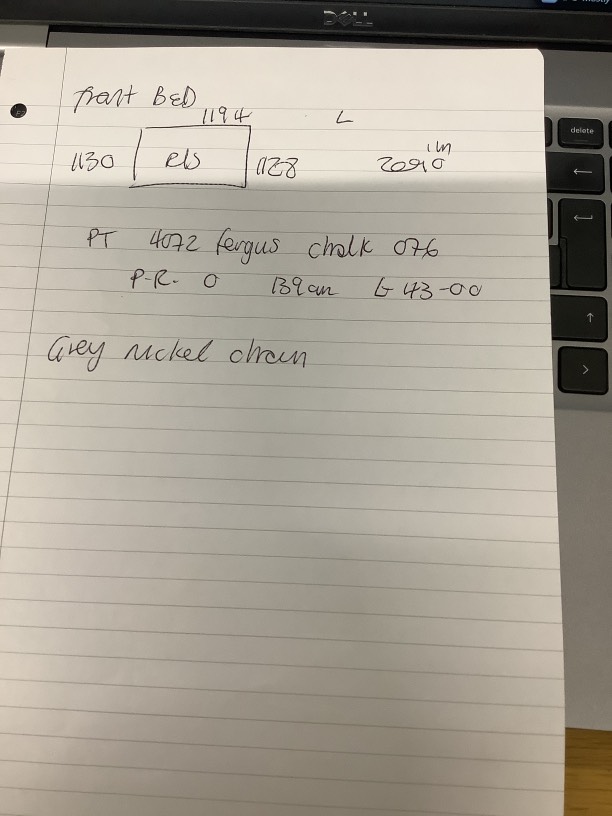 DELL
delete
front BED
1194 L
1130 els 1128 2090 in
PT 4072 fergus chalk 076
P.R. 0 139cm £43-00
Grey nickel chain